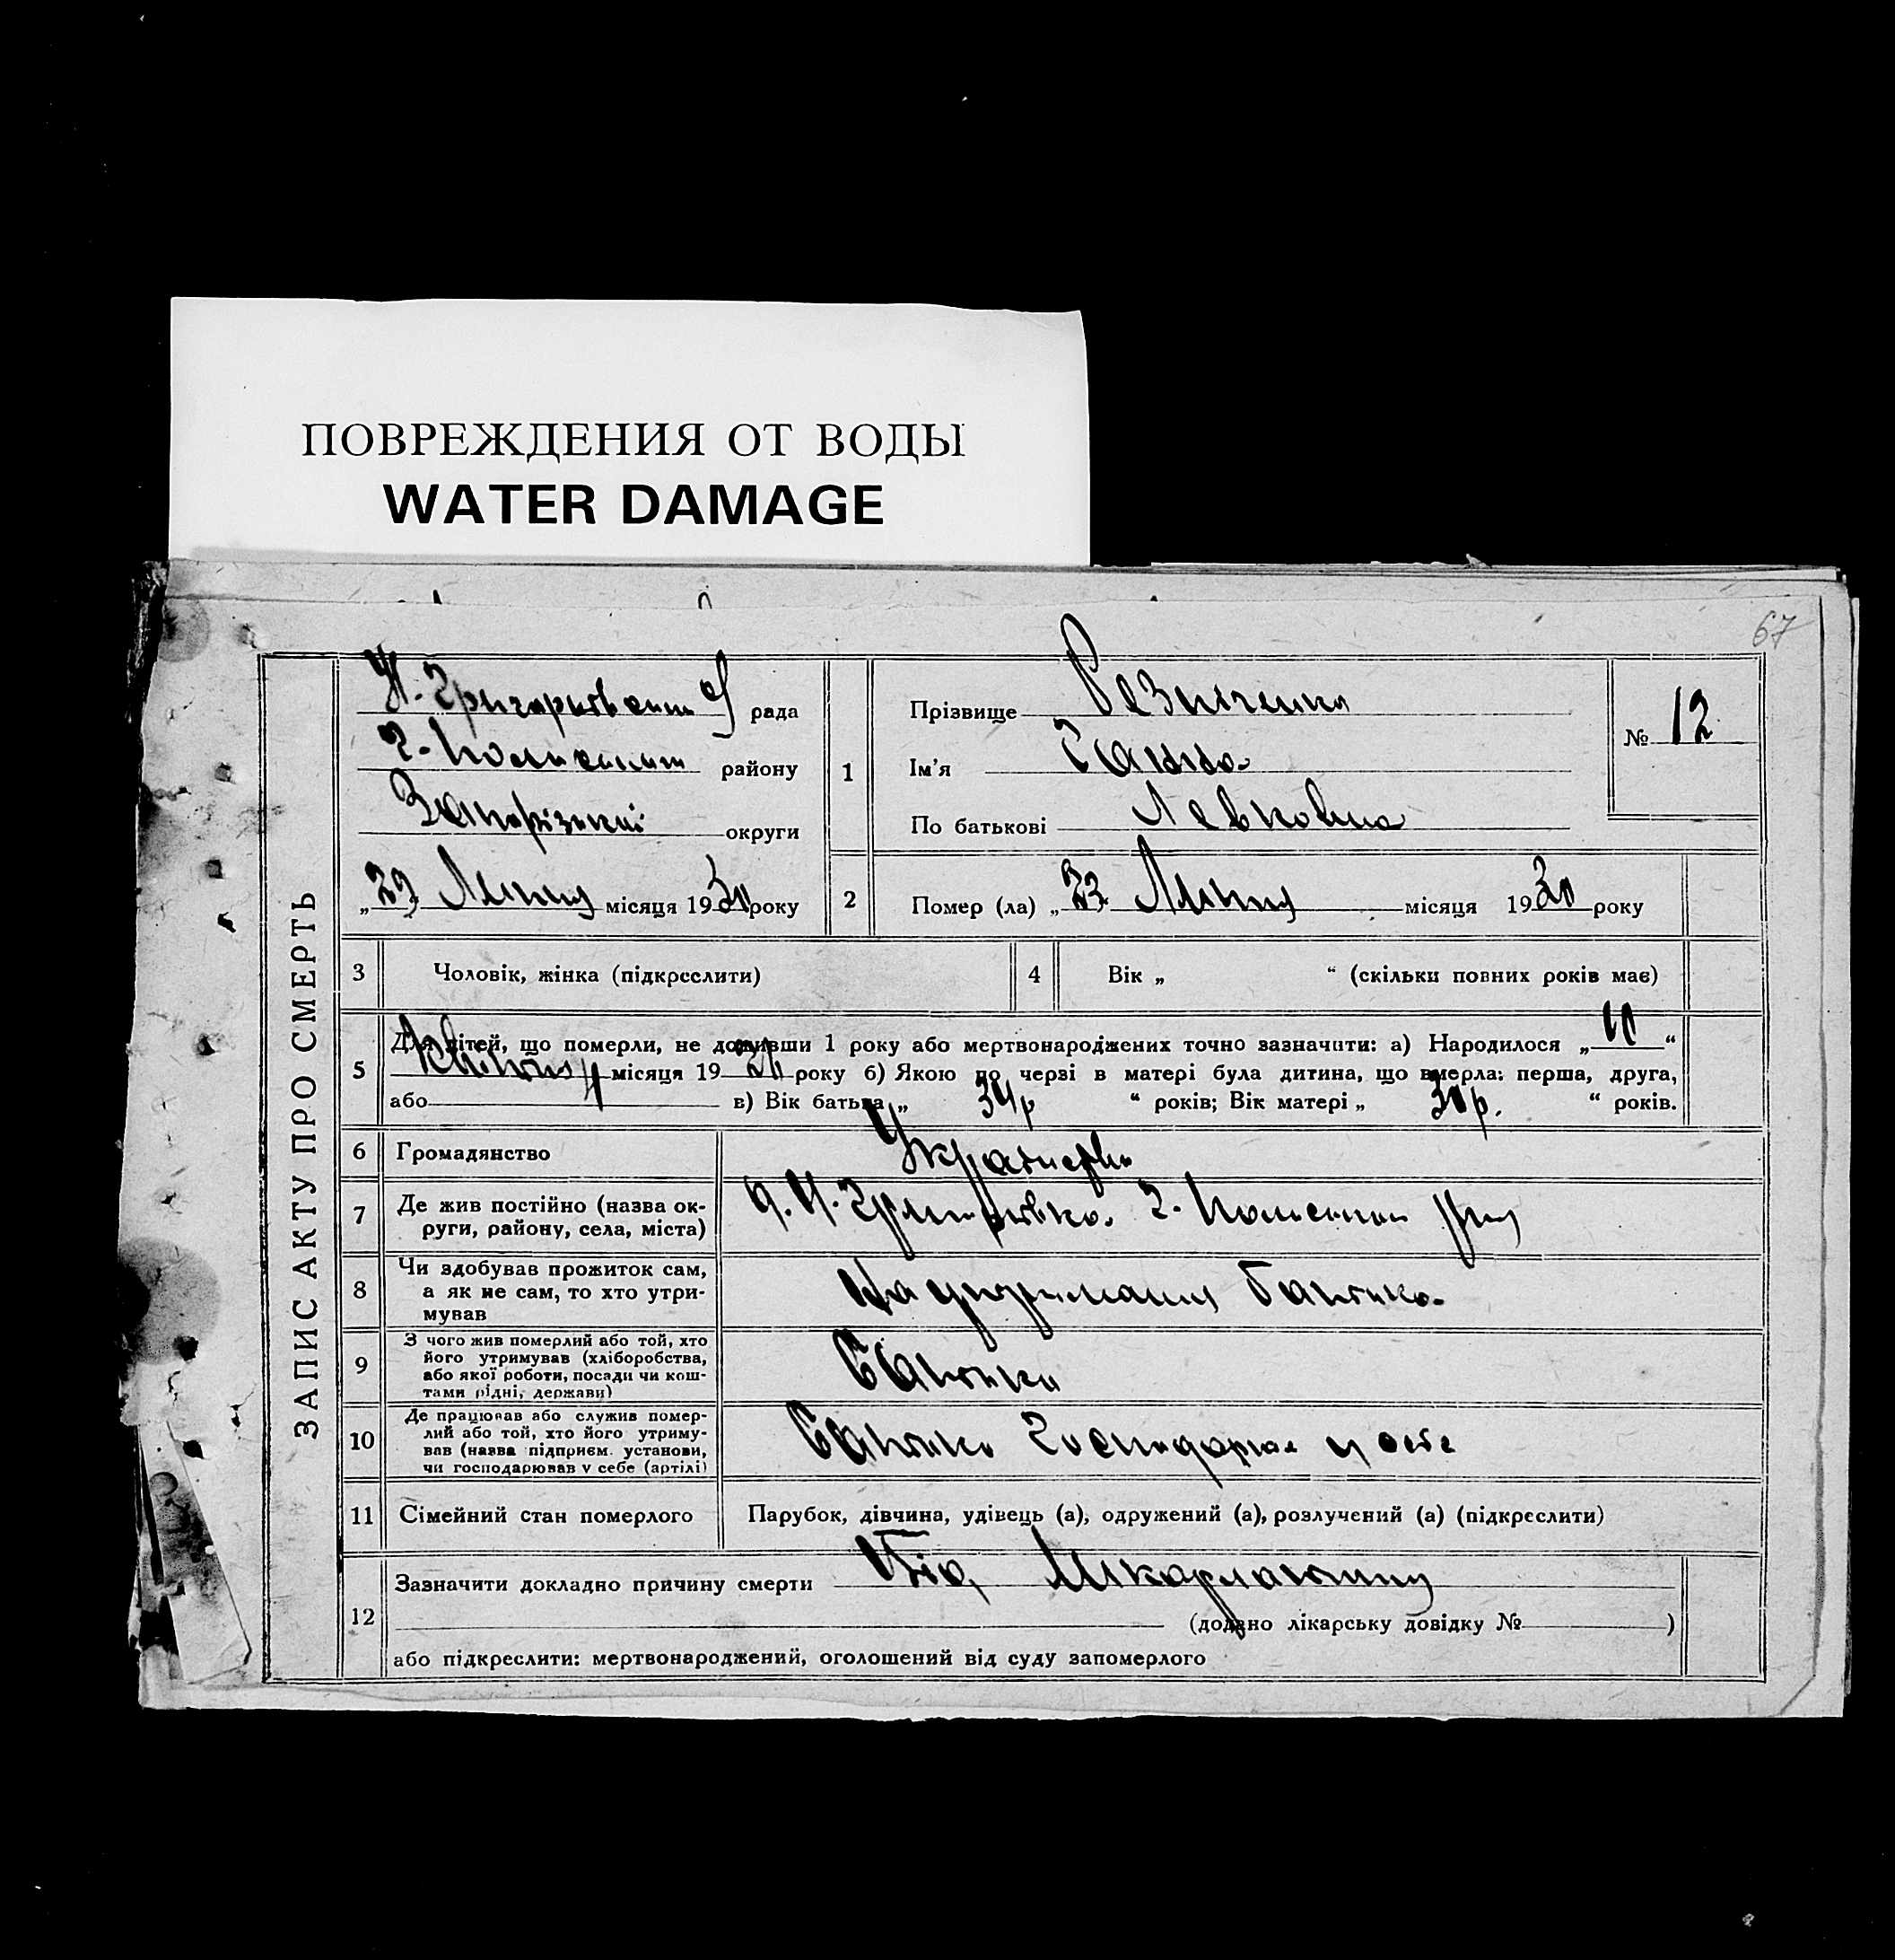 ПОВРЕЖДЕНИЯ ОТ ВОДЫ
WATER DAMAGE
67
ЗАПИС АКТУ ПРО СМЕРТЬ
рада
району
округи
місяця 1930 року
1
Прізвище
Ім'я Ганна
По батькові Левковна
№ 12
2
Помер (ла) „23 Липня місяця 1930 року
3 Чоловік, жінка (підкреслити)
4 Вік „ “ (скільки повних років має)
5
Для дітей, що померли, не доживши 1 року або мертвонароджених точно зазначити: а) Народилося „ “
місяця 19 року б) Якою по черзі в матері була дитина, що вмерла: перша, друга,
або в) Вік батька „ 34р “ років; Вік матері „ 30р. “ років.
6 Громадянство
7 Де жив постійно (назва ок-
руги, району, села, міста)
8 Чи здобував прожиток сам,
а як не сам, то хто утри-
мував
На утриманні батька
9 З чого жив померлий або той, хто
його утримував (хліборобства,
або якої роботи, посади чи кош-
тами рідні, держави)
Батько
10 Де працював або служив помер-
лий або той, хто його утриму-
вав (назва підприєм. установи,
чи господарював у себе (артілі)
Батько Господарює у себе
11 Сімейний стан померлого Парубок, дівчина, удівець (а), одружений (а), розлучений (а) (підкреслити)
12
Зазначити докладно причину смерти Від
(додано лікарську довідку № )
або підкреслити: мертвонароджений, оголошений від суду запомерлого